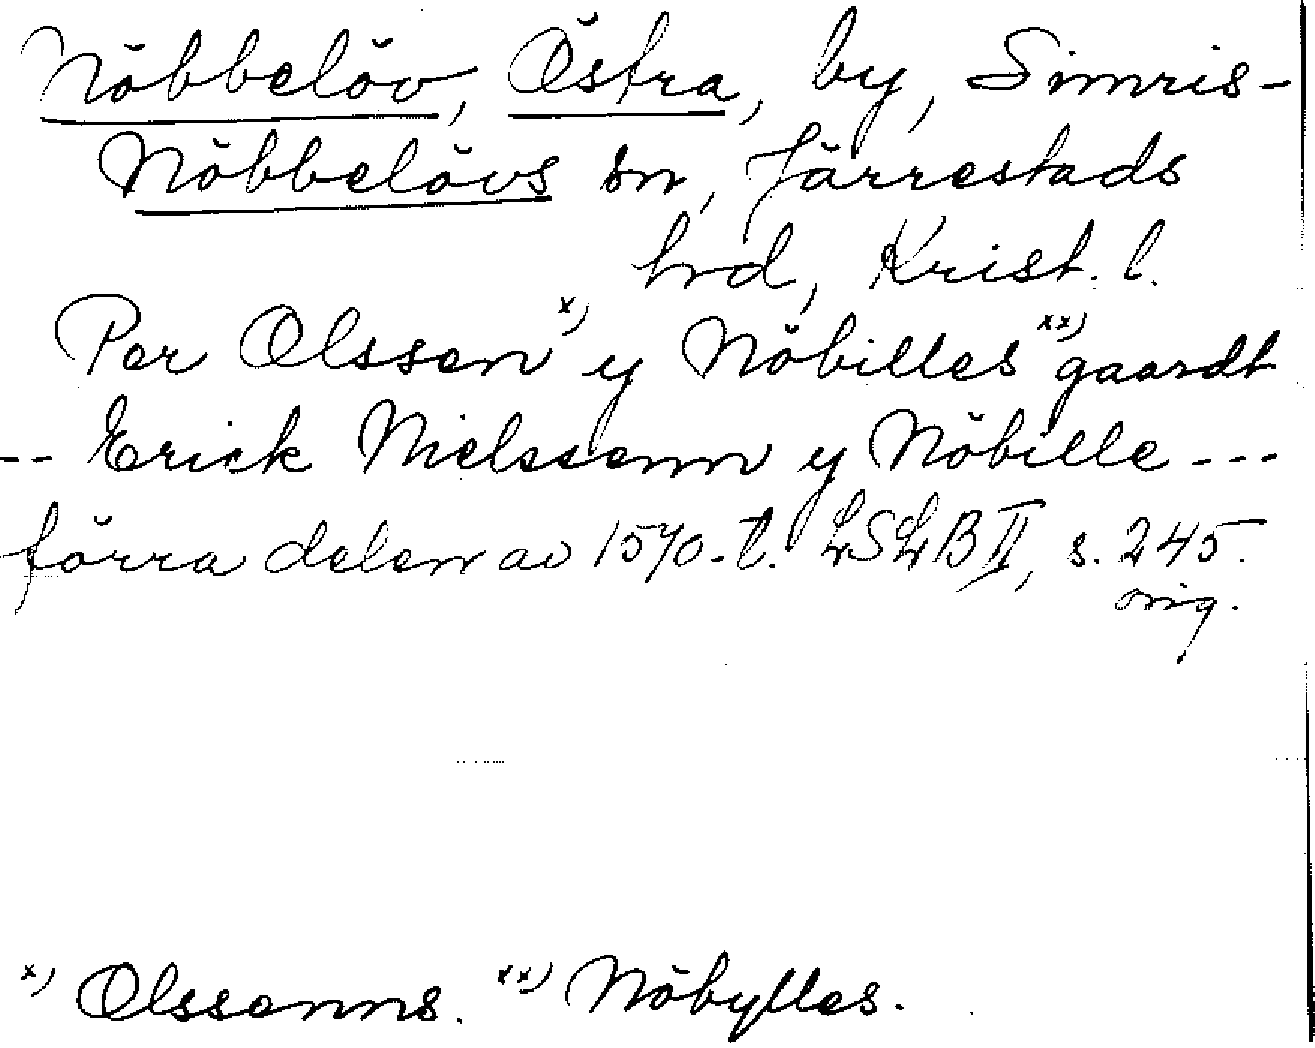 Nöbbelöv, Östra, by, Simris-
Nöbbelövs sn, Järrestads
hrd, Krist. l.
Per Olssen x) y Nöbilles xx) gaardt
-- Erick Nielssenn y Nöbille ---
förra delen av 1570-t. LSLB II, s. 245.
orig.
x) Olssenns. xx) Nöbylles.